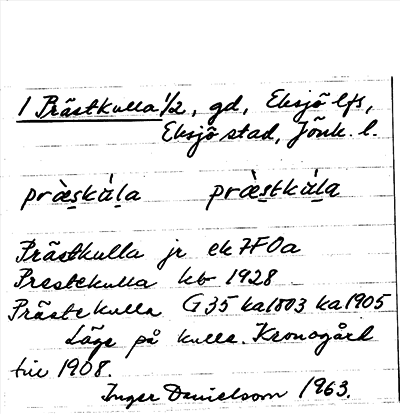 1 Prästkulla 1/2, gd, Eksjö lfs,
Eksjö stad, Jönk. l.
præ̀s̠kúl̠a præ̀s̠tkúl̠a
Prästkulla jr ek 7F0a
Prestekulla kb 1928
Prästekulla G35 ka1803 ka1905
Läge på kulle. Kronogård
till 1908.
Inger Danielsson 1963.